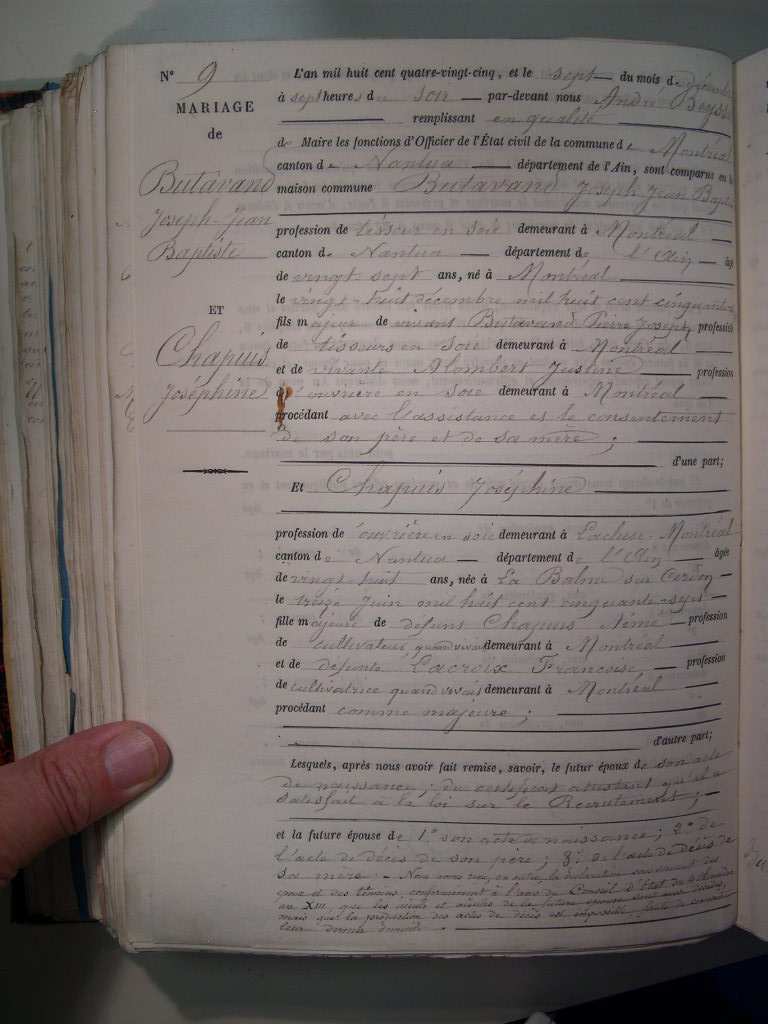 N° 9
MARIAGE
de
Butavand
Joseph-Jean
Baptiste
ET
Chapuis
Joséphine
L'an mil huit cent quatre-vingt-cinq, et le sept du mois de
à sept heures de soir par-devant nous André
remplissant en qualité
de Maire les fonctions d'Officier de l'État civil de la commune de Montréal
canton de Nantua département de l'Ain, sont comparus en la
maison commune Butavand Joseph Jean Baptiste
profession de tisseur en soie demeurant à Montréal
canton de Nantua département de l'Ain âgé
de vingt-sept ans, né à Montréal
le vingt-huit décembre mil huit cent cinquante-
fils majeur de vivants Butavand Pierre Joseph, profession
de tisseurs en soie demeurant à Montréal
et de vivante Alombert Justine profession
d'ouvrière en soie demeurant à Montréal
procédant avec l'assistance et le consentement
de son père et de sa mère ;
d'une part;
Et Chapuis Joséphine
profession de ouvrière en soie demeurant à Lacluse-Montréal
canton de Nantua département de l'Ain âgée
de vingt huit ans, née à La Balme sur Cerdon
le treize Juin mil huit cent cinquante-sept
fille majeure de défunt Chapuis Aimé profession
de cultivateur quand vivait demeurant à Montréal
et de défunte Lacroix Françoise profession
de cultivatrice quand vivait demeurant à Montréal
procédant comme majeure ;
d'autre part;
Lesquels, après nous avoir fait remise, savoir, le futur époux de son acte
de naissance ; du certificat attestant qu'il a
satisfait à la loi sur le Recrutement ;
et la future épouse de 1° son acte de naissance ; 2° de
l'acte de décès de son père ; 3° de l'acte de décès de
sa mère : - Nous avons reçu, en outre, la déclaration
et des témoins, conformément à l'avis du Conseil d'Etat du 4
an XIII, que les aïeuls et aïeules de la future épouse sont
mais que la production des actes de décès est impossible faute de
leur dernier domicile.